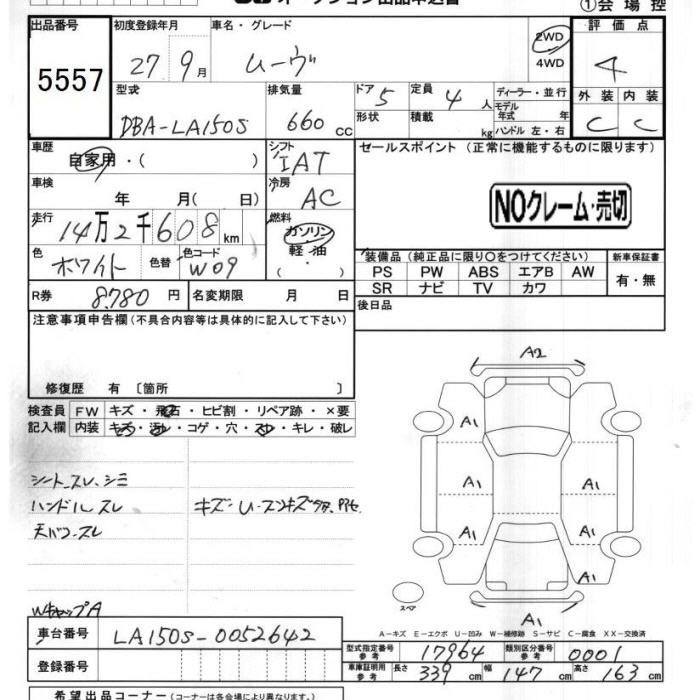 ①会場控
オークション出品申込書
出品番号 5557
初度登録年月 27 9月
車名・グレード ムーヴ
2WD
4WD
評価点 4
外装 C 内装 C
型式 DBA-LA150S
排気量 660cc
ドア 5
形状
定員 4人
積載 kg
ディーラー・並行
モデル年式 年
ハンドル 左・右
車歴 自家用・( )
シフト IAT
セールスポイント(正常に機能するものに限ります)
NOクレーム・売切
車検 年 月( 日)
冷房 AC
走行 14万2千608km
燃料 ガソリン・軽油
色 ホワイト 色替
色コード W09
装備品(純正品に限り○をつけてください) 新車保証書
PS PW ABS エアB AW 有・無
SR ナビ TV カワ
R券 8,780円 名変期限 月 日
後日品
注意事項申告欄(不具合内容等は具体的に記入して下さい)
修復歴 有〔箇所 〕
検査員記入欄
FW キズ・飛石・ヒビ割・リペア跡・×要
内装 キズ・汚レ・コゲ・穴・スレ・キレ・破レ
シート、スレ、シミ
ハンドルスレ
天バコ、スレ
キズ・U・スンキズ
WキャップA
A2
A1
A1
A1
A1
A1
A1
A1
スペア
A－キズ E－エクボ U－凹み W－補修跡 S－サビ C－腐食 XX－交換済
車台番号 LA150S-0052642
登録番号
型式指定番号参考 17964 類別区分番号参考 0001
車庫証明用参考 長さ 339cm 幅 147cm 高さ 163cm
希望出品コーナー(コーナーは各会場により異なります。)